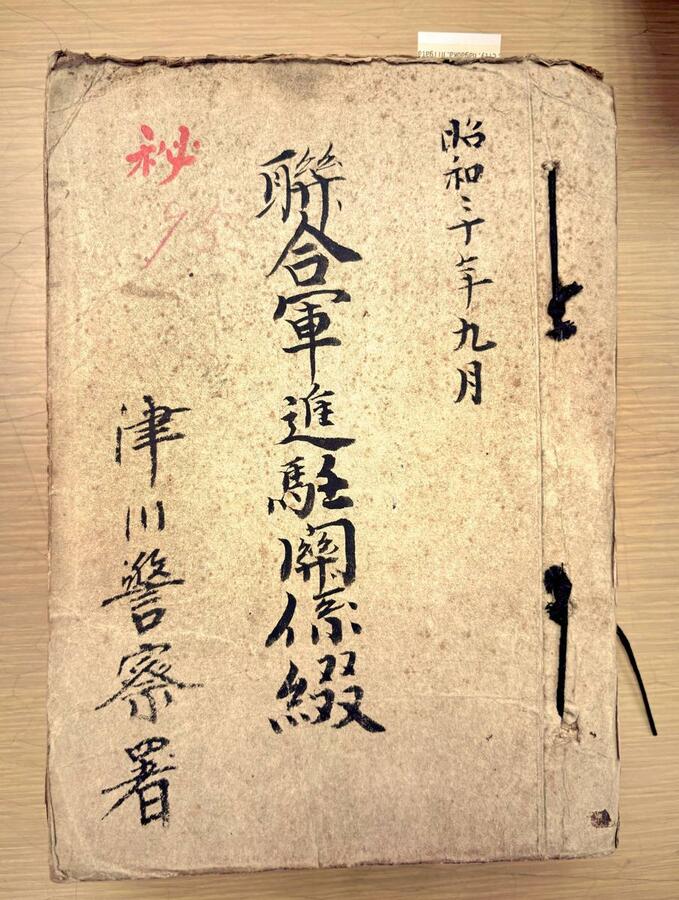 昭和二十年九月
聯合軍進駐關係綴
秘
津川警察署